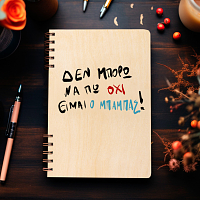 ΔΕΝ ΜΠΟΡΩ
ΝΑ ΠΩ ΟΧΙ
ΕΙΜΑΙ Ο ΜΠΑΜΠΑΣ!